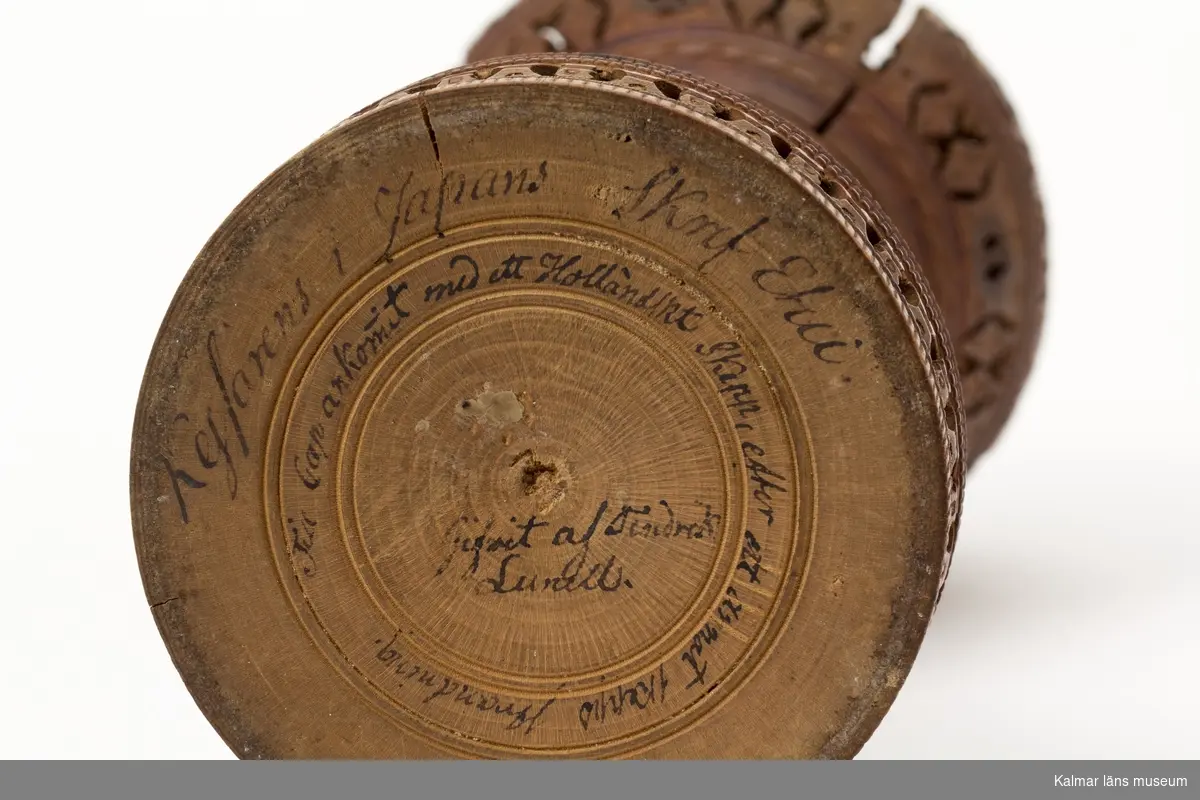 Kejsarens i Japans Skrif Etui.
Till Cap ankomit med ett Holländskt Skipp, efter ett annat skeps strandning.
Gifvit af Tindrets
Lunell.
Kalmar läns museum